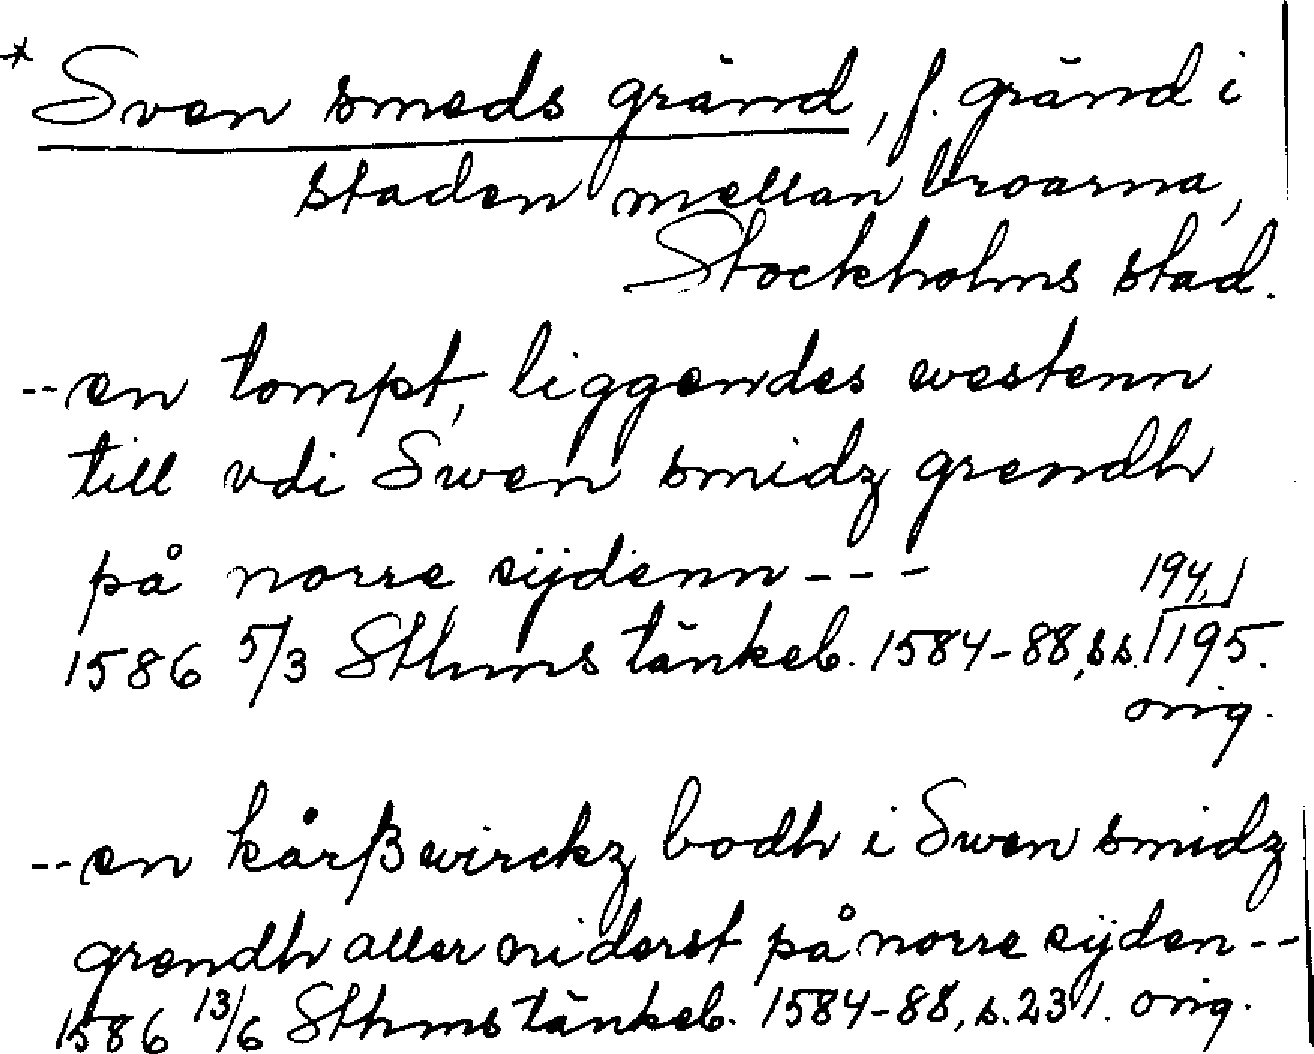 * Sven smeds gränd, f. gränd i
staden mellan broarna,
Stockholms stad.
-- en tompt, liggendes westenn
till vdi Swen smidz grendh
på norre sijdenn ---
1586 5/3 Sthms tänkeb. 1584-88, ss. 194, 195.
orig.
-- en kårßwirckz bodh i Swen smidz
grendh aller niderst på norre sijden --
1586 13/6 Sthms tänkeb. 1584-88, s. 231. orig.